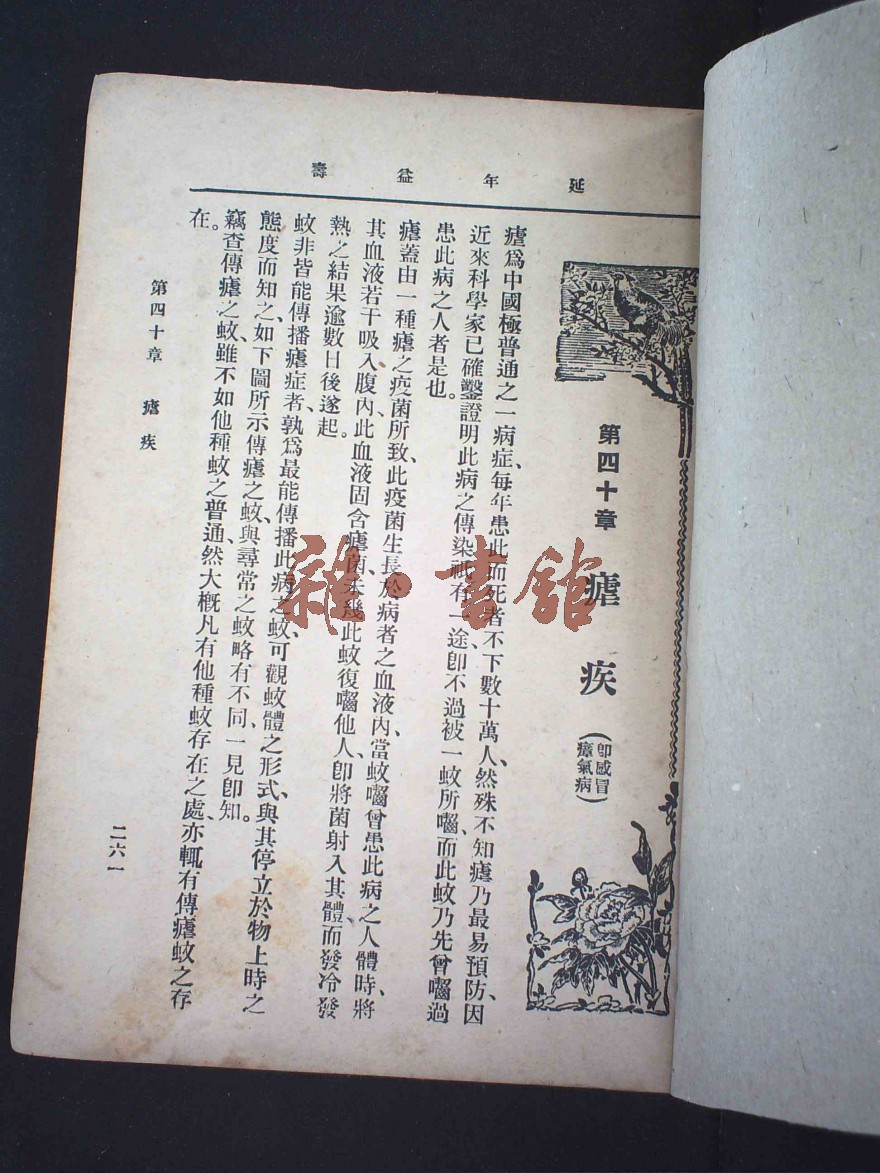 延年益壽
第四十章 瘧疾
(卽感冒
瘴氣病)
瘧爲中國極普通之一病症、每年患此而死者不下數十萬人、然殊不知瘧乃最易預防、因
近來科學家已確鑿證明此病之傳染祇有一途、卽不過被一蚊所囓、而此蚊乃先曾囓過
患此病之人者是也。
瘧蓋由一種瘧之疫菌所致、此疫菌生長於病者之血液內、當蚊囓曾患此病之人體時、將
其血液若干吸入腹內、此血液固含瘧菌、未幾此蚊復囓他人、卽將菌射入其體、而發冷發
熱之結果、逾數日後遂起。
蚊非皆能傳播瘧症者、孰爲最能傳播此病之蚊、可觀蚊體之形式、與其停立於物上時之
態度而知之、如下圖所示傳瘧之蚊、與尋常之蚊略有不同、一見卽知。
竊查傳瘧之蚊、雖不如他種蚊之普通、然大概凡有他種蚊存在之處、亦輒有傳瘧蚊之存
在。
第四十章 瘧疾
二六一
雜·書館